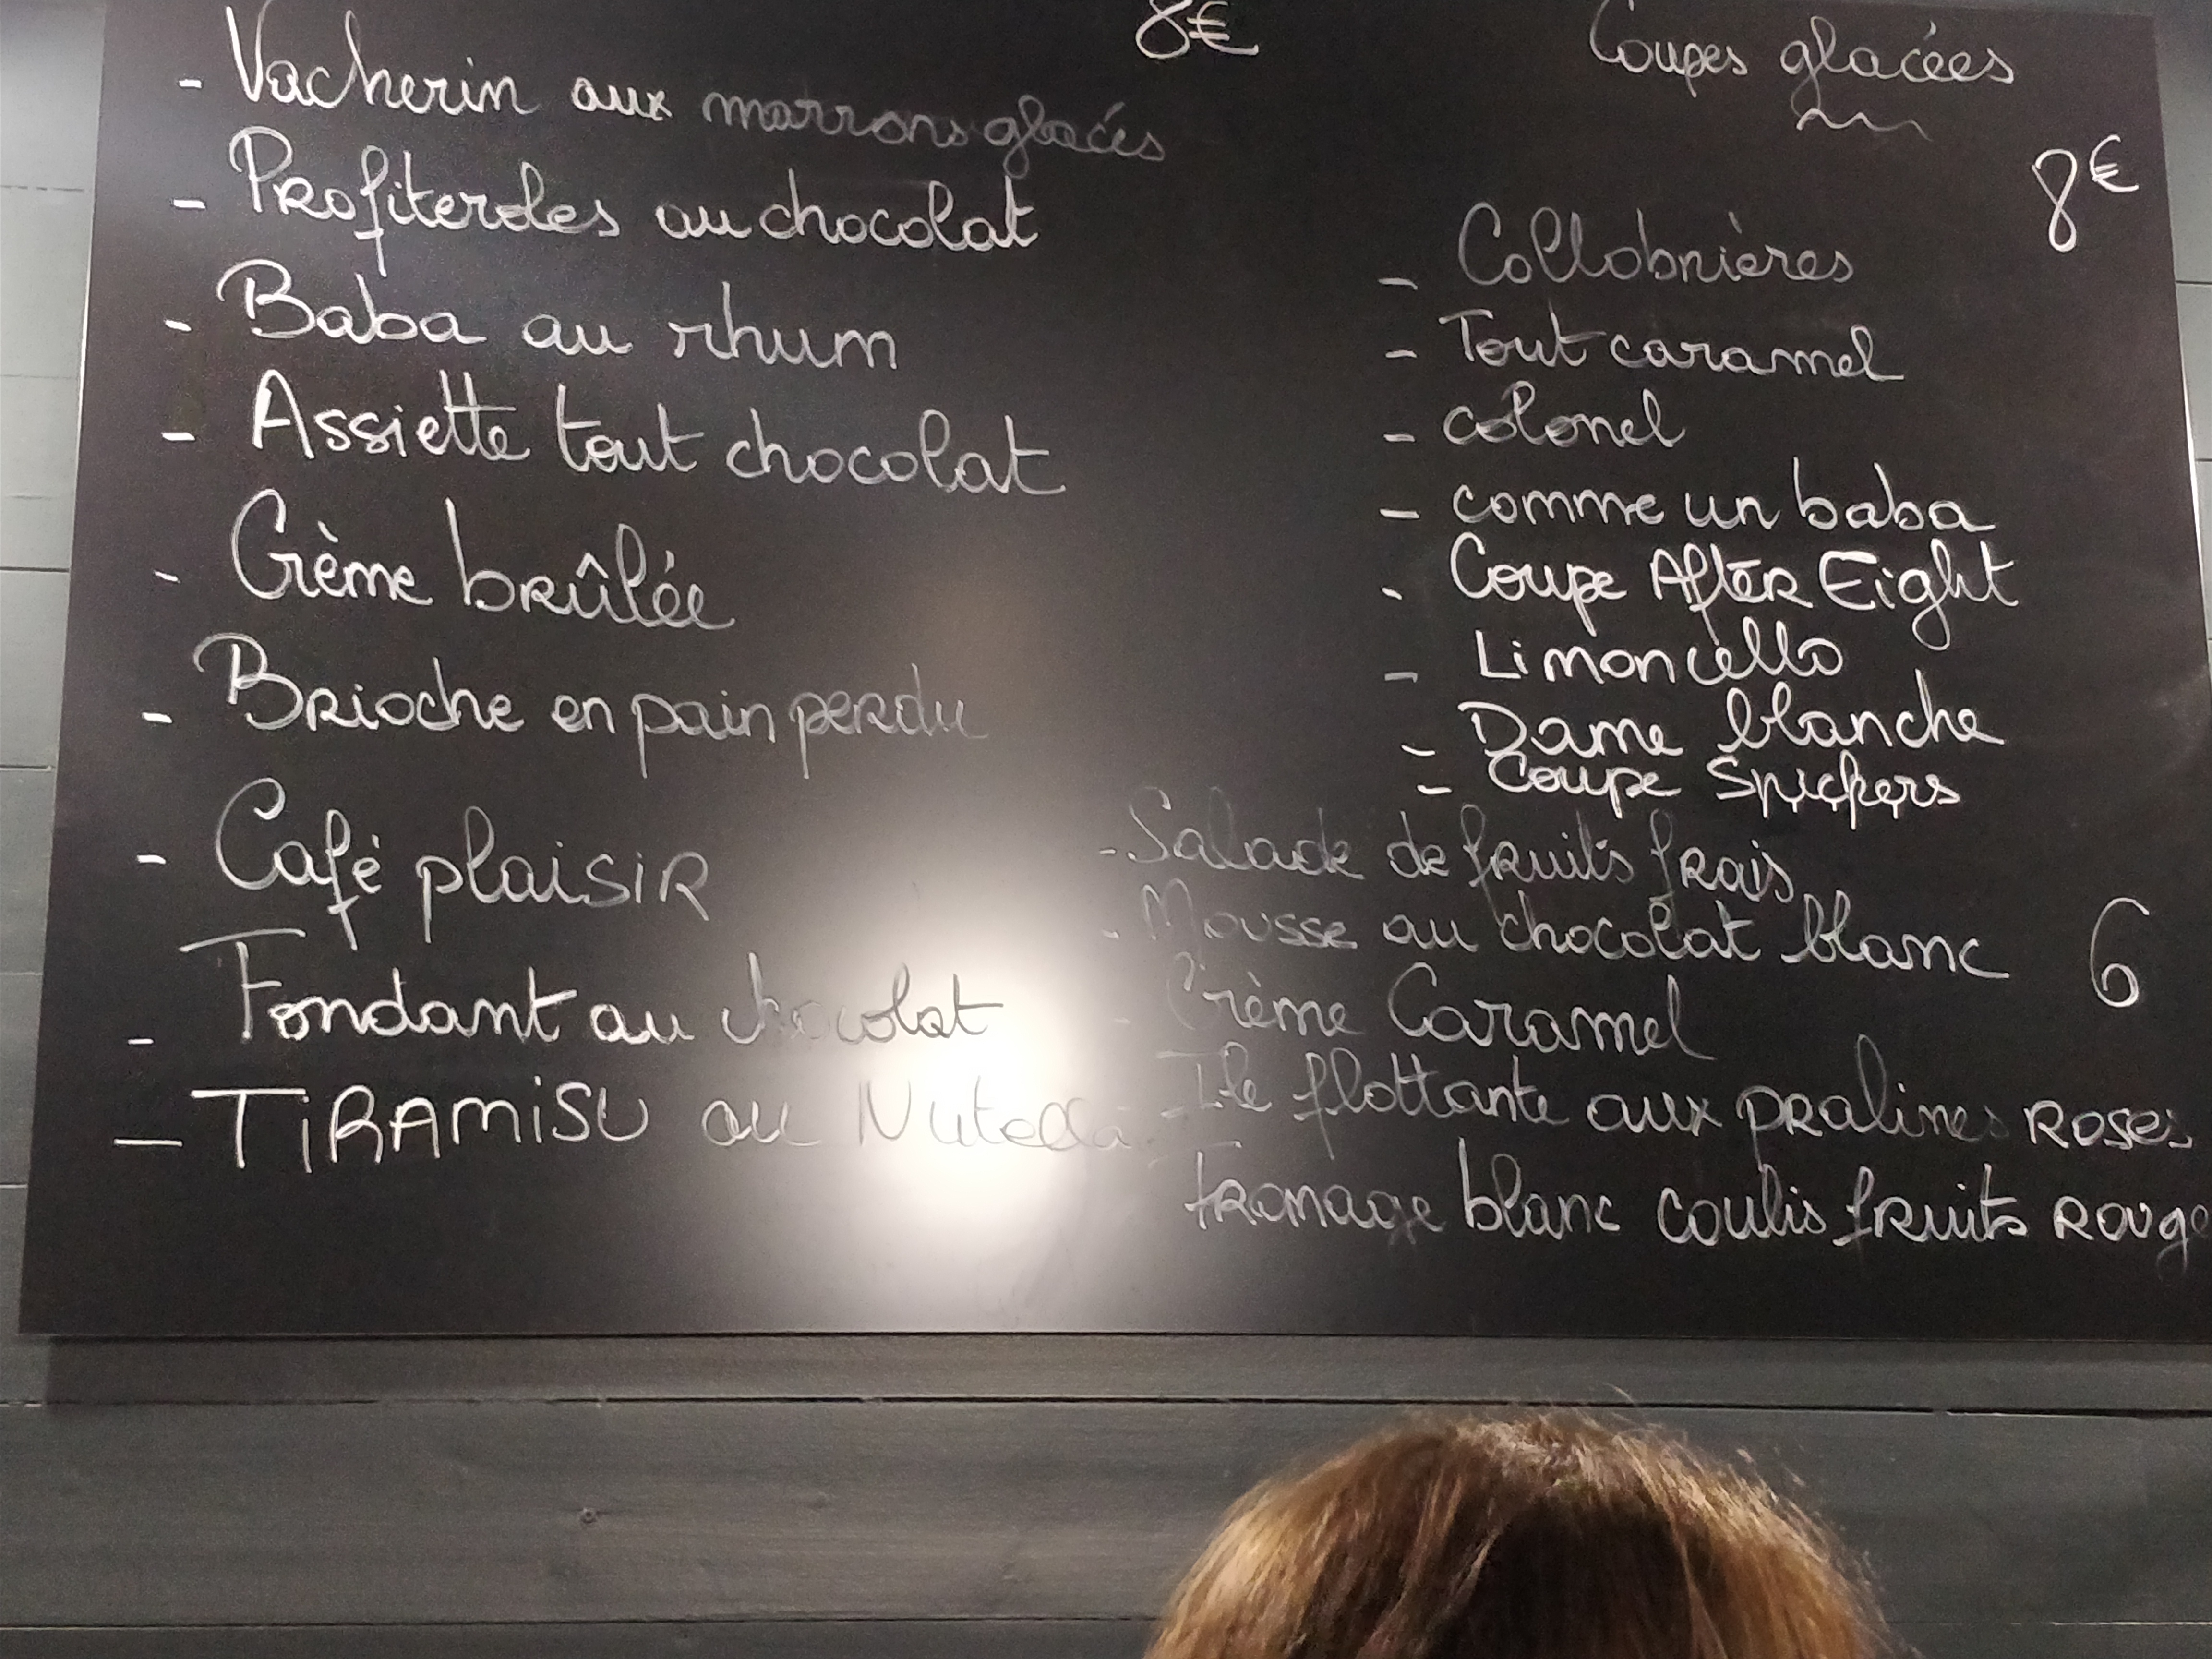 8€
- Vacherin aux marrons glacés
- Profiteroles au chocolat
- Baba au rhum
- Assiette tout chocolat
- Crème brûlée
- Brioche en pain perdu
- Café plaisir
- Fondant au chocolat
- TIRAMISU au Nutella
Coupes glacées
8€
- Collobrières
- Tout caramel
- colonel
- comme un baba
- Coupe After Eight
- Limoncello
- Dame blanche
- Coupe Snickers
- Salade de fruits frais
- Mousse au chocolat blanc 6
- Crème Caramel
- Ile flottante aux pralines roses
- fromage blanc coulis fruits rouge